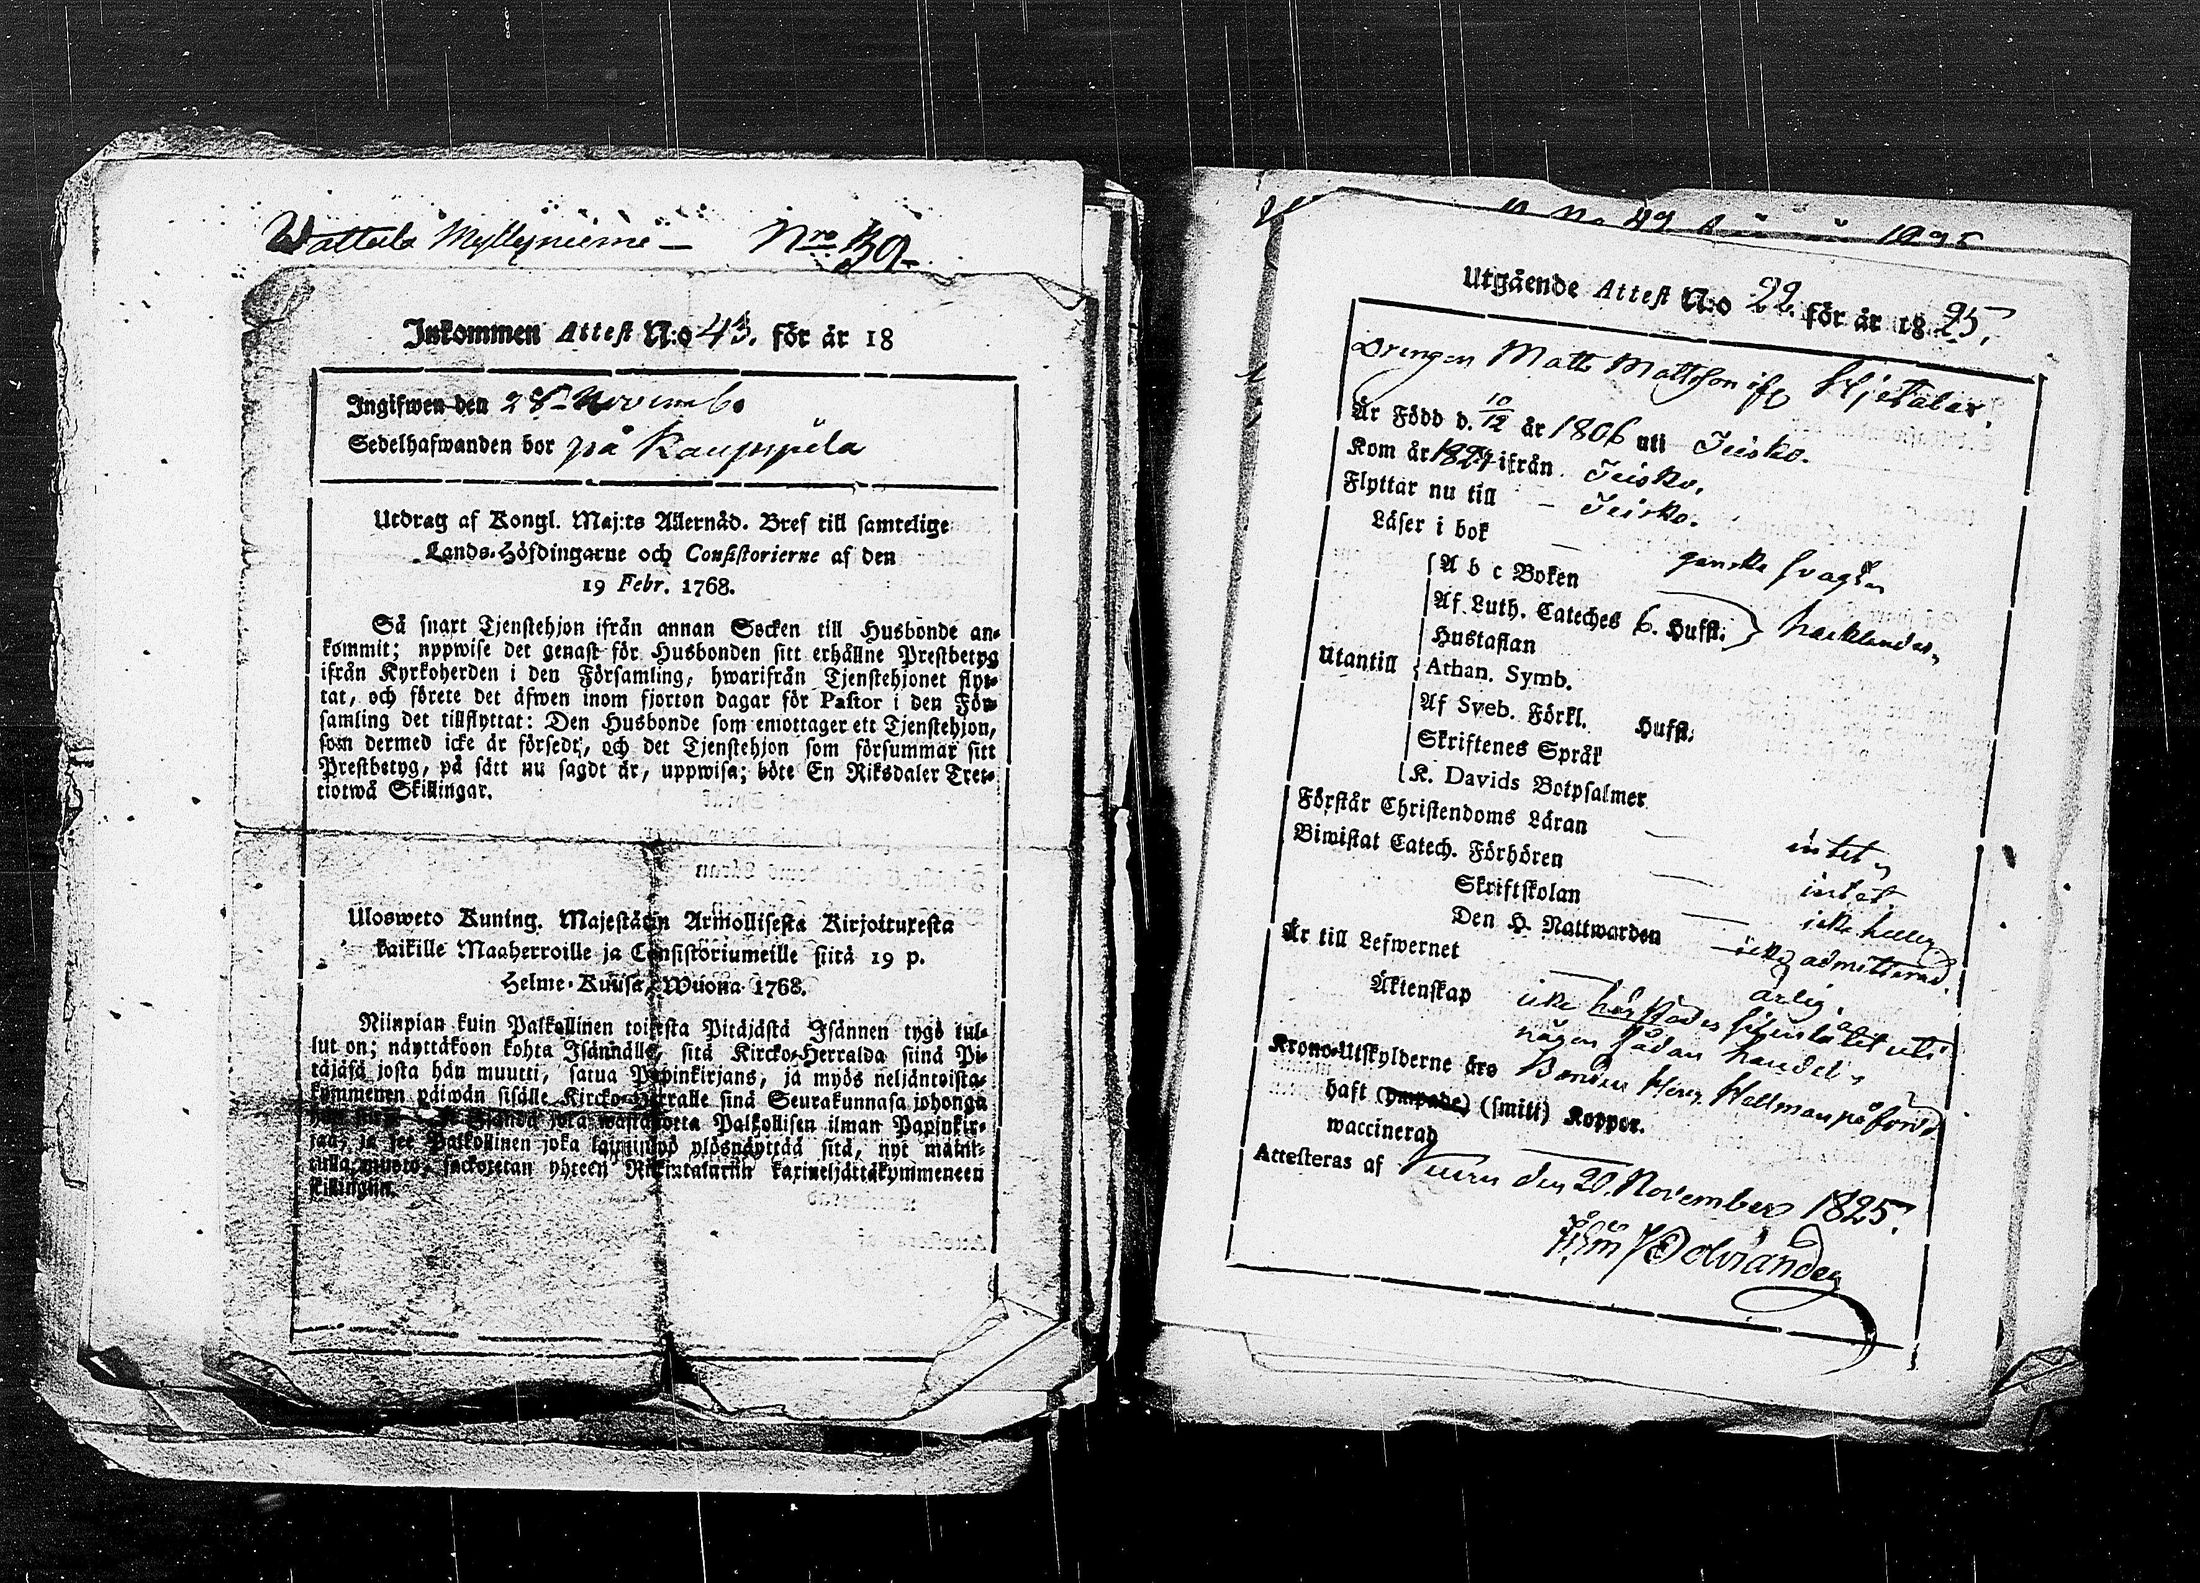 Wattula Myllyniemi — Nro 39.
Inkommen Attest N:o 43. för år 18
Ingifwen den 28 Novemb.
Sedelhafwanden bor på Kauppila
Utdrag af Kongl. Maj:ts Allernåd. Bref till samtelige
Lands-Höfdingarne och Consistorierne af den
19 Febr. 1768.
Så snart Tjenstehjon ifrån annan Socken till Husbonde an-
kommit; uppwise det genast för Husbonden sitt erhållne Prestbetyg
ifrån Kyrkoherden i den Församling, hwarifrån Tjenstehjonet flyt-
tat, och förete det äfwen inom fjorton dagar för Pastor i den För-
samling det tillflyttat: Den Husbonde som emottager ett Tjenstehjon,
som dermed icke är försedt, och det Tjenstehjon som försummar sitt
Prestbetyg, på sätt nu sagdt är, uppwisa; böte En Riksdaler Tret-
tiotwå Skillingar.
Ulosweto Kuning. Majestätin Armollisesta Kirjoituxesta
kaikille Maaherroille ja Consistoriumeille siitä 19 p.
Helme-Kuusa, Wuona 1768.
Niinpian kuin Palkollinen toisesta Pitäjästä Isännen tygö tul-
lut on; näyttäköön kohta Isännälle, sitä Kircko-Herralda siinä Pi-
täjäsä josta hän muutti, saatua Papinkirjans, ja myös neljäntoista-
kymmenen päiwän sisälle Kircko-Herralle siinä Seurakunnasa johonga
Isändä joka wastaanotta Palkollisen ilman Papinkir-
jaa, ja see Palkollinen joka laiminlyö ylösnäyttää sitä, nyt mainit-
tulla muoto, sackotetan yhteen Rikintaleriin kaxineljättäkymmeneen
skillingiin.
Utgående Attest N:o 22. för år 1825.
Drengen Matts Mattsson ifr Hjetalax,
Är Född d. 10/12 år 1806 uti Teisko.
Kom år 1824 ifrån Teisko.
Flyttar nu till — Teisko.
Läser i bok — ganska svagt
A b c Boken
Af Luth. Cateches 6. Hufst. hacklandes
Hustaflan
Utantill Athan. Symb.
Af Sveb. Förkl. Hufst.
Skriftenes Språk
K. Davids Botpsalmer
Förstår Christendoms Läran — intet
Biwistat Catech. Förhören — intet.
Skriftskolan — icke heller
Den H. Nattwarden — icke admitterad.
Är till Lefwernet — ärlig.
Äktenskap icke
någon sådan handel
Krono-Utskylderne äro Bonden Henr. Hellman på
haft (ympade) (smitt) Koppor.
waccinerad
Attesteras af den 20. November 1825.